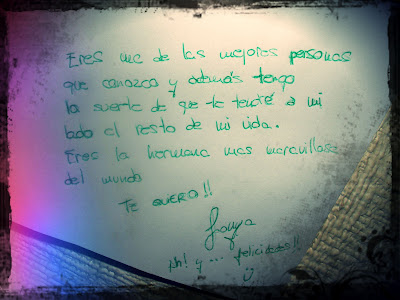 Eres una de las mejores personas
que conozco y además tengo
la suerte de que te tendré a mi
lado el resto de mi vida.
Eres la hermana mas maravillosa
del mundo
TE QUIERO!!
Ah! y ... felicidades!!